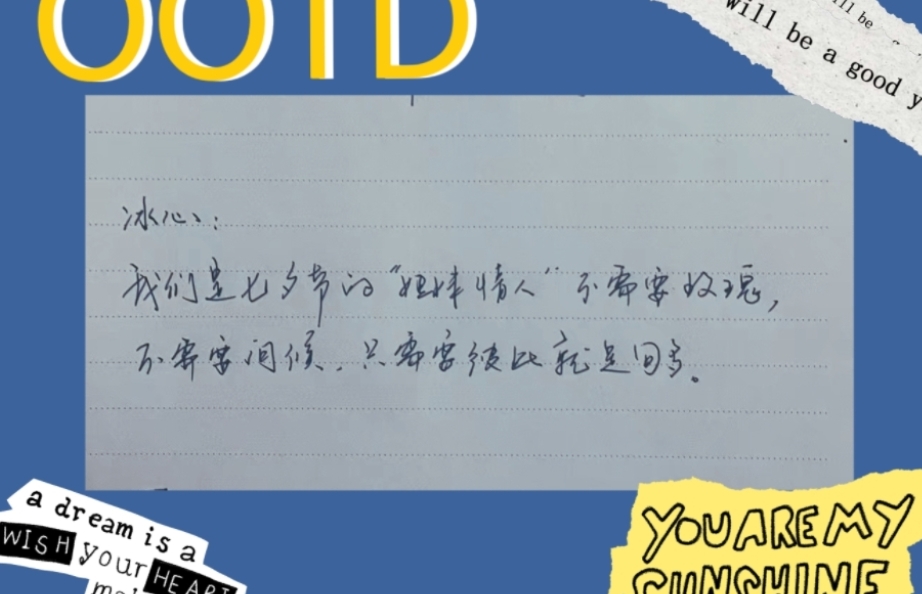 OOTD
will be
will be a good
冰心:
我们是七夕节的“姐妹情人”不需要玫瑰,
不需要问候,只需要彼此就是
a dream is a
WISH your HEART
YOU ARE MY
SUNSHINE